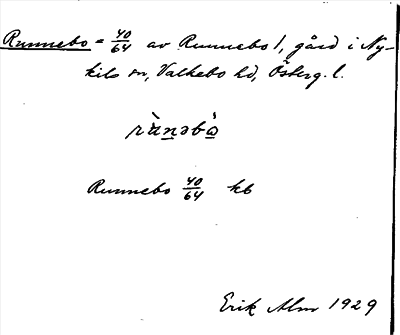 Runnebo = 40/64 av Runnebo 1, gård i Ny-
kils sn, Valkebo hd, Österg. l.
rùnəbò
Runnebo 40/64 kb
Erik Alm 1929